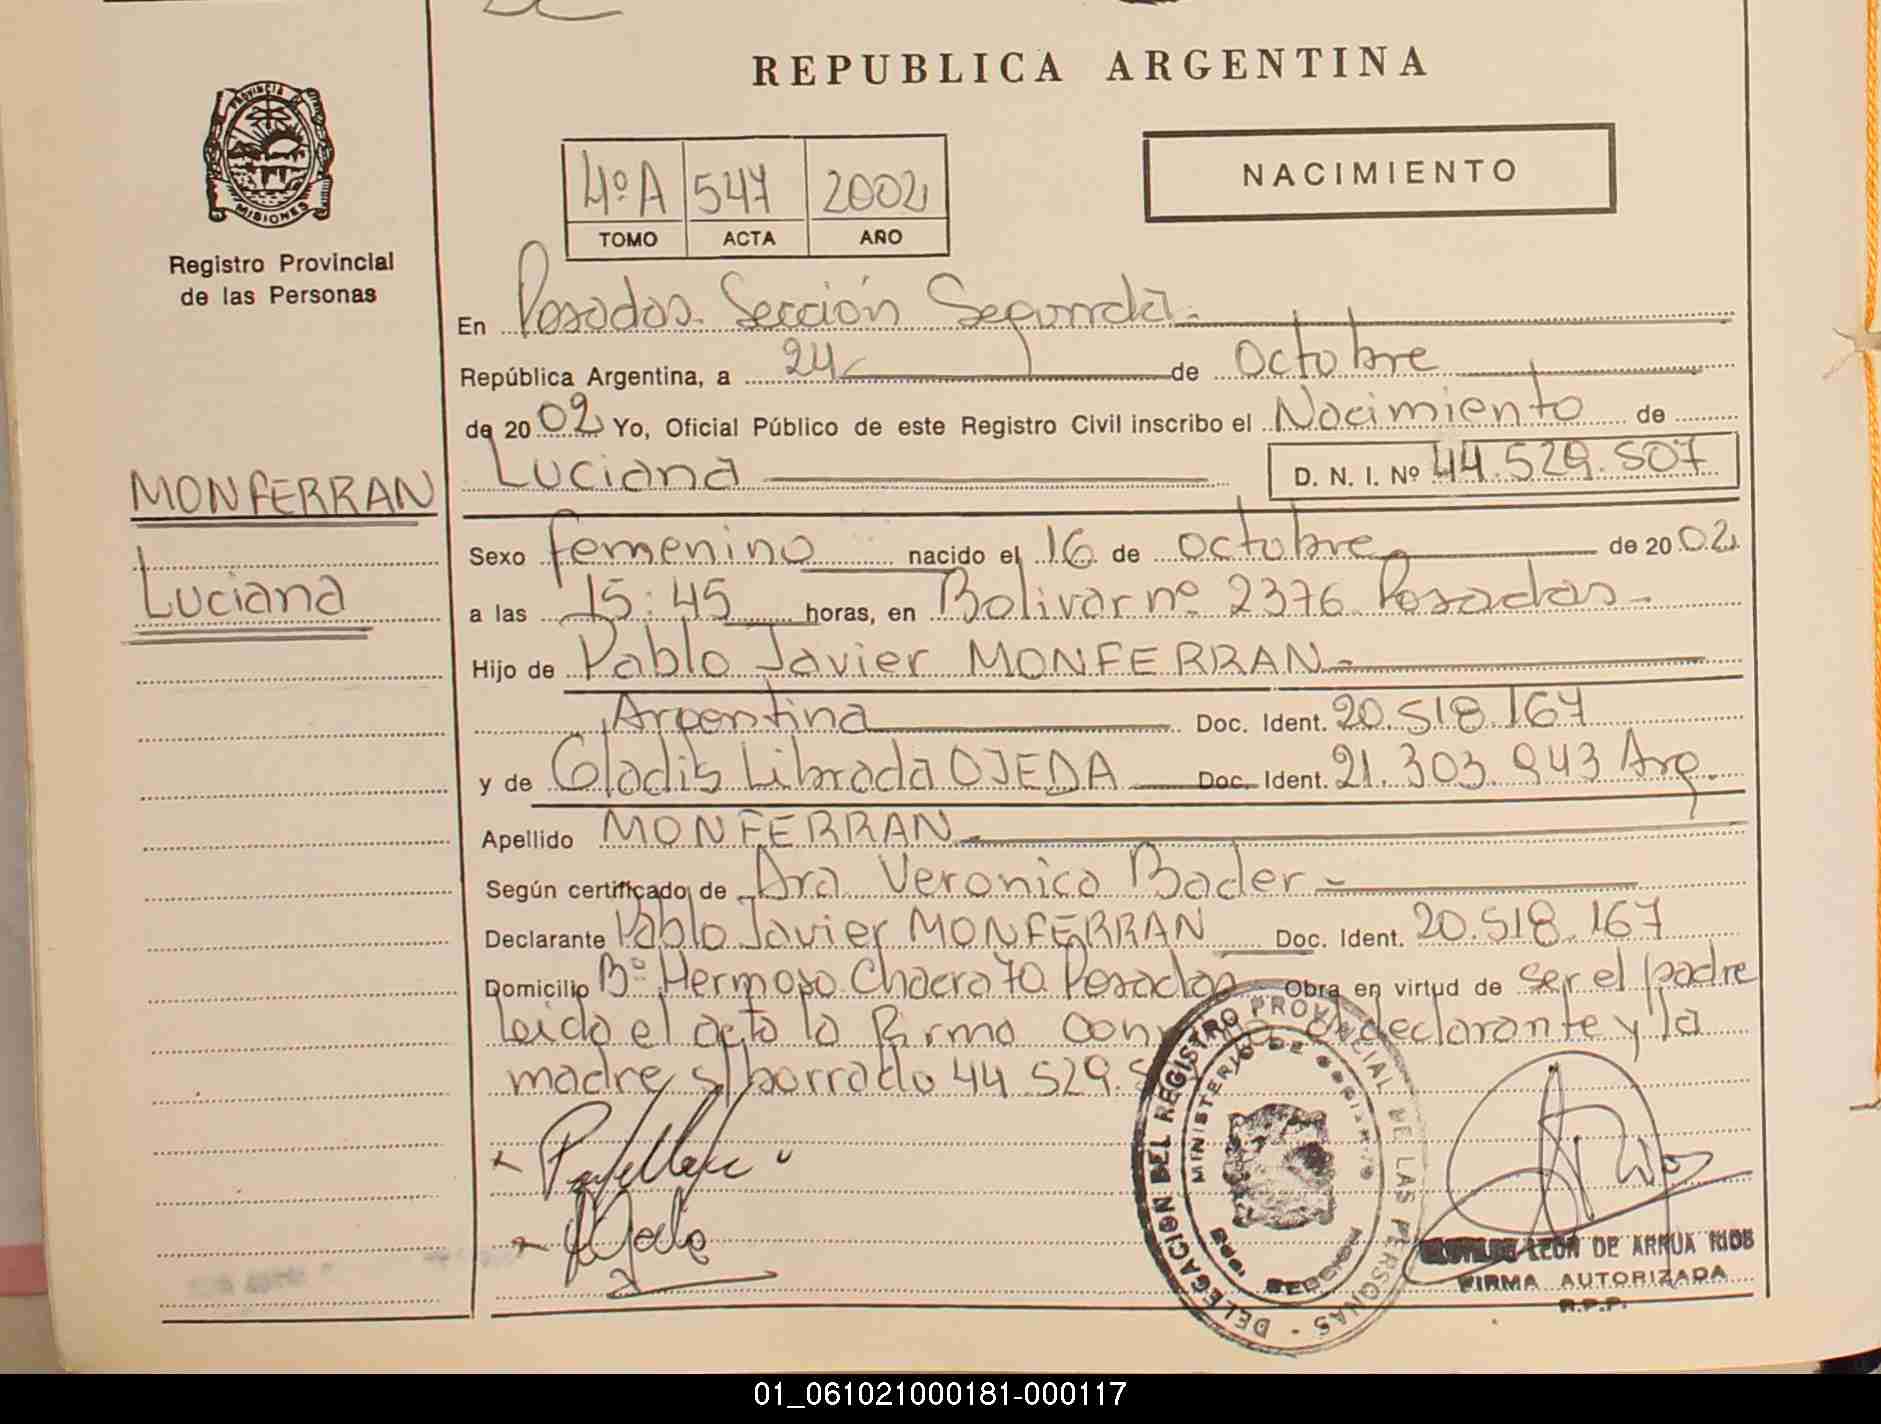 REPUBLICA ARGENTINA
PROVINCIA DE
MISIONES
Registro Provincial
de las Personas
4º A 547 2002
TOMO ACTA AÑO
NACIMIENTO
En Posadas. Sección Segunda.
República Argentina, a 24 de octubre
de 2002 Yo, Oficial Público de este Registro Civil inscribo el Nacimiento de
Luciana D. N. I. Nº 44.529.507
MONFERRAN
Luciana
Sexo femenino nacido el 16 de octubre de 2002
a las 15:45 horas, en Bolivar nº 2376 Posadas
Hijo de Pablo Javier MONFERRAN
Argentina Doc. Ident. 20.518.167
y de Gladis Librada OJEDA Doc. Ident. 21.303.943 Arg.
Apellido MONFERRAN
Según certificado de Dra Veronica Bader
Declarante Pablo Javier MONFERRAN Doc. Ident. 20.518.167
Domicilio Bº Hermoso Chacra 70 Posadas Obra en virtud de ser el padre
leido el acto lo firma declarante y la
madre s/borrado 44.529.
DELEGACION DEL REGISTRO PROVINCIAL DE LAS PERSONAS
MINISTERIO DE GOBIERNO
SECCION
LEON DE ARRUA RIOS
FIRMA AUTORIZADA
R.P.P.
01_061021000181-000117